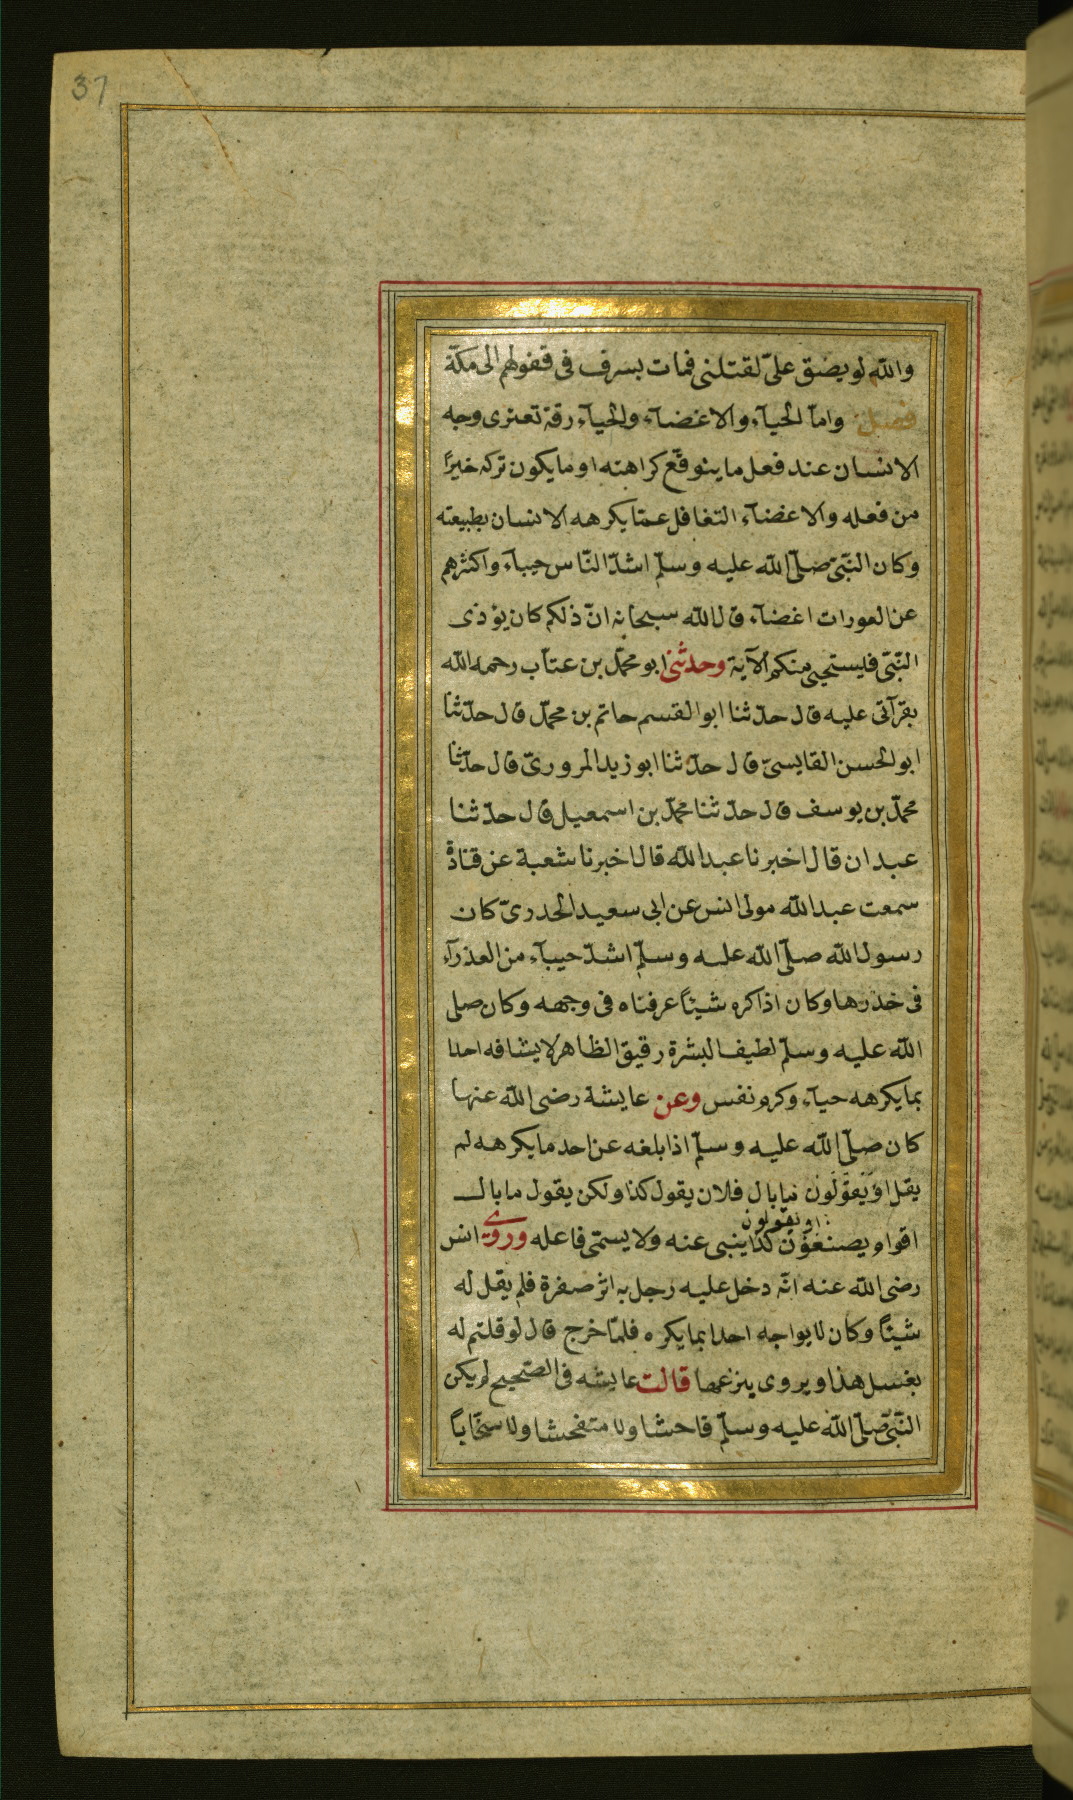 37
والله لو بصق علىّ لقتلنى فمات بسرف فى قفولهم الى مكّة
فصل واما الحيآء والاغضآء والحيآء رقة تعترى وجه
الانسان عند فعل ما يتوقّع كراهته او ما يكون تركه خيرًا
من فعله والاغضآء التغافل عمّا يكرهه الانسان بطبيعته
وكان النّبىّ صلّى الله عليه وسلّم اشدّ النّاس حيآء واكثرهم
عن العورات اغضآء قال الله سبحانه انّ ذلكم كان يؤذى
النّبىّ فليستحيى منكم الآية وحدثنى ابو محمّد بن عتاب رحمه الله
بقرآتى عليه قال حدّثنا ابو القسم حاتم بن محمّد قال حدّثنا
ابو الحسن القابسىّ قال حدّثنا ابو زيد المروزىّ قال حدّثنا
محمّد بن يوسف قال حدّثنا محمّد بن اسمعيل قال حدّثنا
عبدان قال اخبرنا عبد الله قال اخبرنا شعبة عن قتادة
سمعت عبد الله مولى انس عن ابى سعيد الخدرىّ كان
رسول الله صلّى الله عليه وسلّم اشدّ حيآء من العذرآء
فى خدرها وكان اذا كره شيئًا عرفناه فى وجهه وكان صلى
الله عليه وسلّم لطيف البشرة رقيق الظاهر لا يشافه احدا
بما يكرهه حيآء وكرم نفس وعن عايشة رضى الله عنها
كان صلّى الله عليه وسلّم اذا بلغه عن احد ما يكرهه لم
يقل او يَقُولُون ما بال فلان يقول كذا ولكن يقول ما بال
اقوام يصنعون كذا ينهى عنه ولا يسمّى فاعله وروى انس
او يقولون
رضى الله عنه انّه دخل عليه رجل به اثر صفرة فلم يقل له
شيئًا وكان لا يواجه احدا بما يكره فلمّا خرج قال لو قلتم له
يغسل هذا ويروى ينزعها قالت عايشه فى الصّحيح لم يكن
النّبىّ صلّى الله عليه وسلّم فاحشا ولا متفحشا ولا سخّابًا